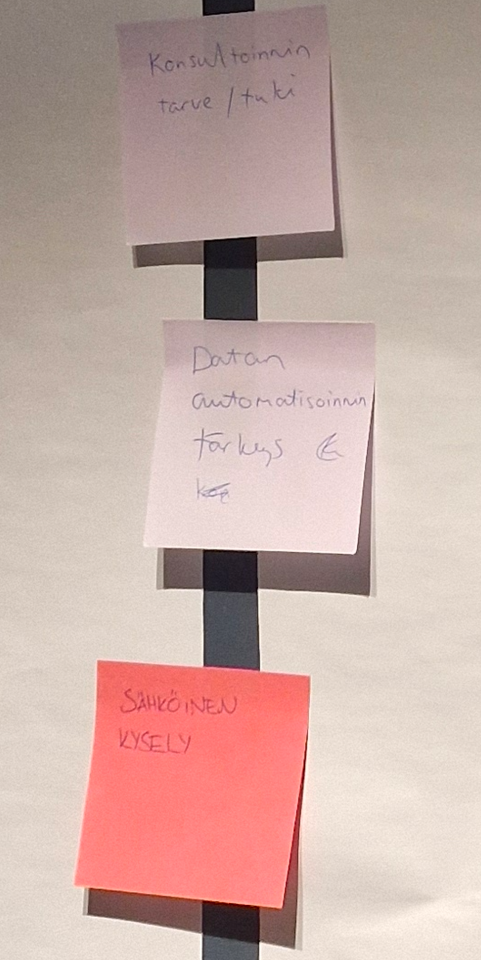 Konsultoinnin
tarve / tuki
Datan
automatisoinnin
tärkeys
SÄHKÖINEN
KYSELY